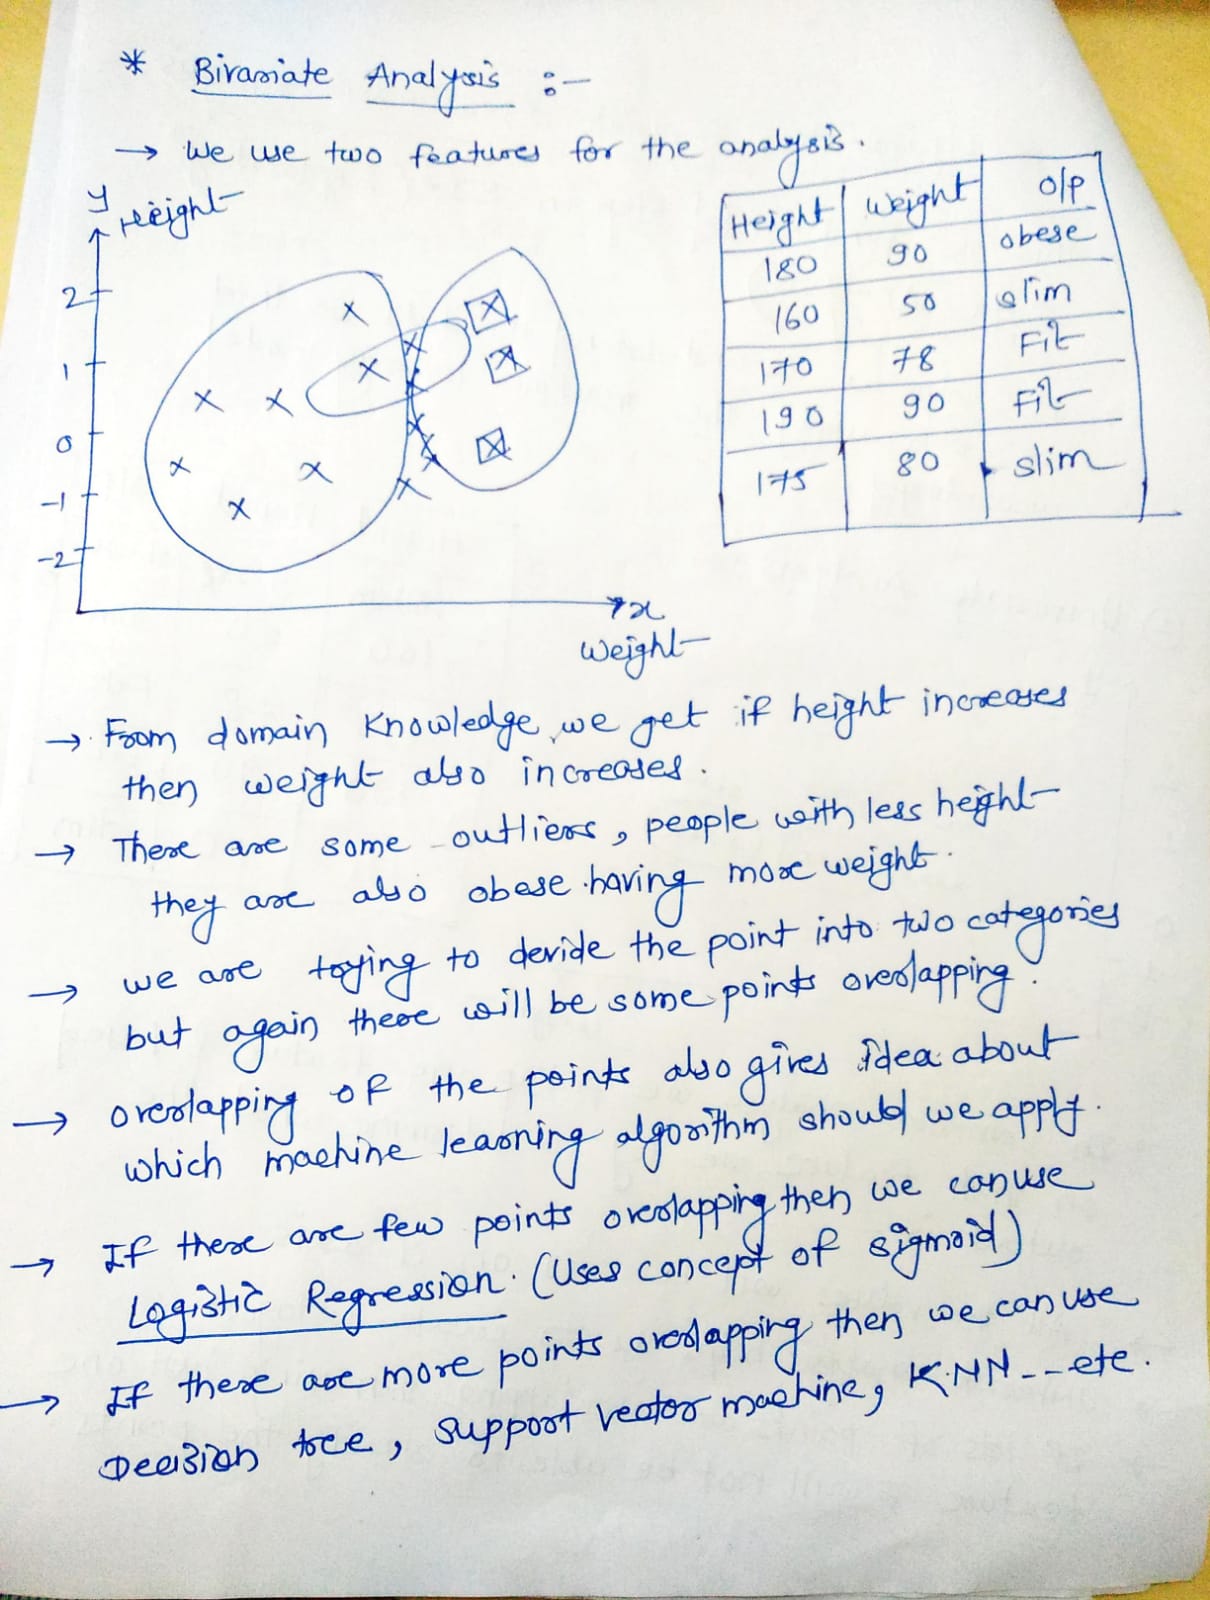 * Bivariate Analysis :-
→ We use two features for the analysis.
y
Height
2
1
0
-1
-2
x
Weight
Height Weight o/p
180 90 obese
160 50 slim
170 78 Fit
190 90 Fit
175 80 slim
→ From domain knowledge we get if height increases
then weight also increases.
→ There are some outliers, people with less height
they are also obese having more weight.
→ we are trying to devide the point into two categories
but again there will be some points overlapping.
→ overlapping of the points also gives idea about
which machine learning algorithm should we apply.
→ If there are few points overlapping then we can use
Logistic Regression. (Uses concept of sigmoid)
→ If there are more points overlapping then we can use
Decision tree, support vector machine, K.NN--etc.